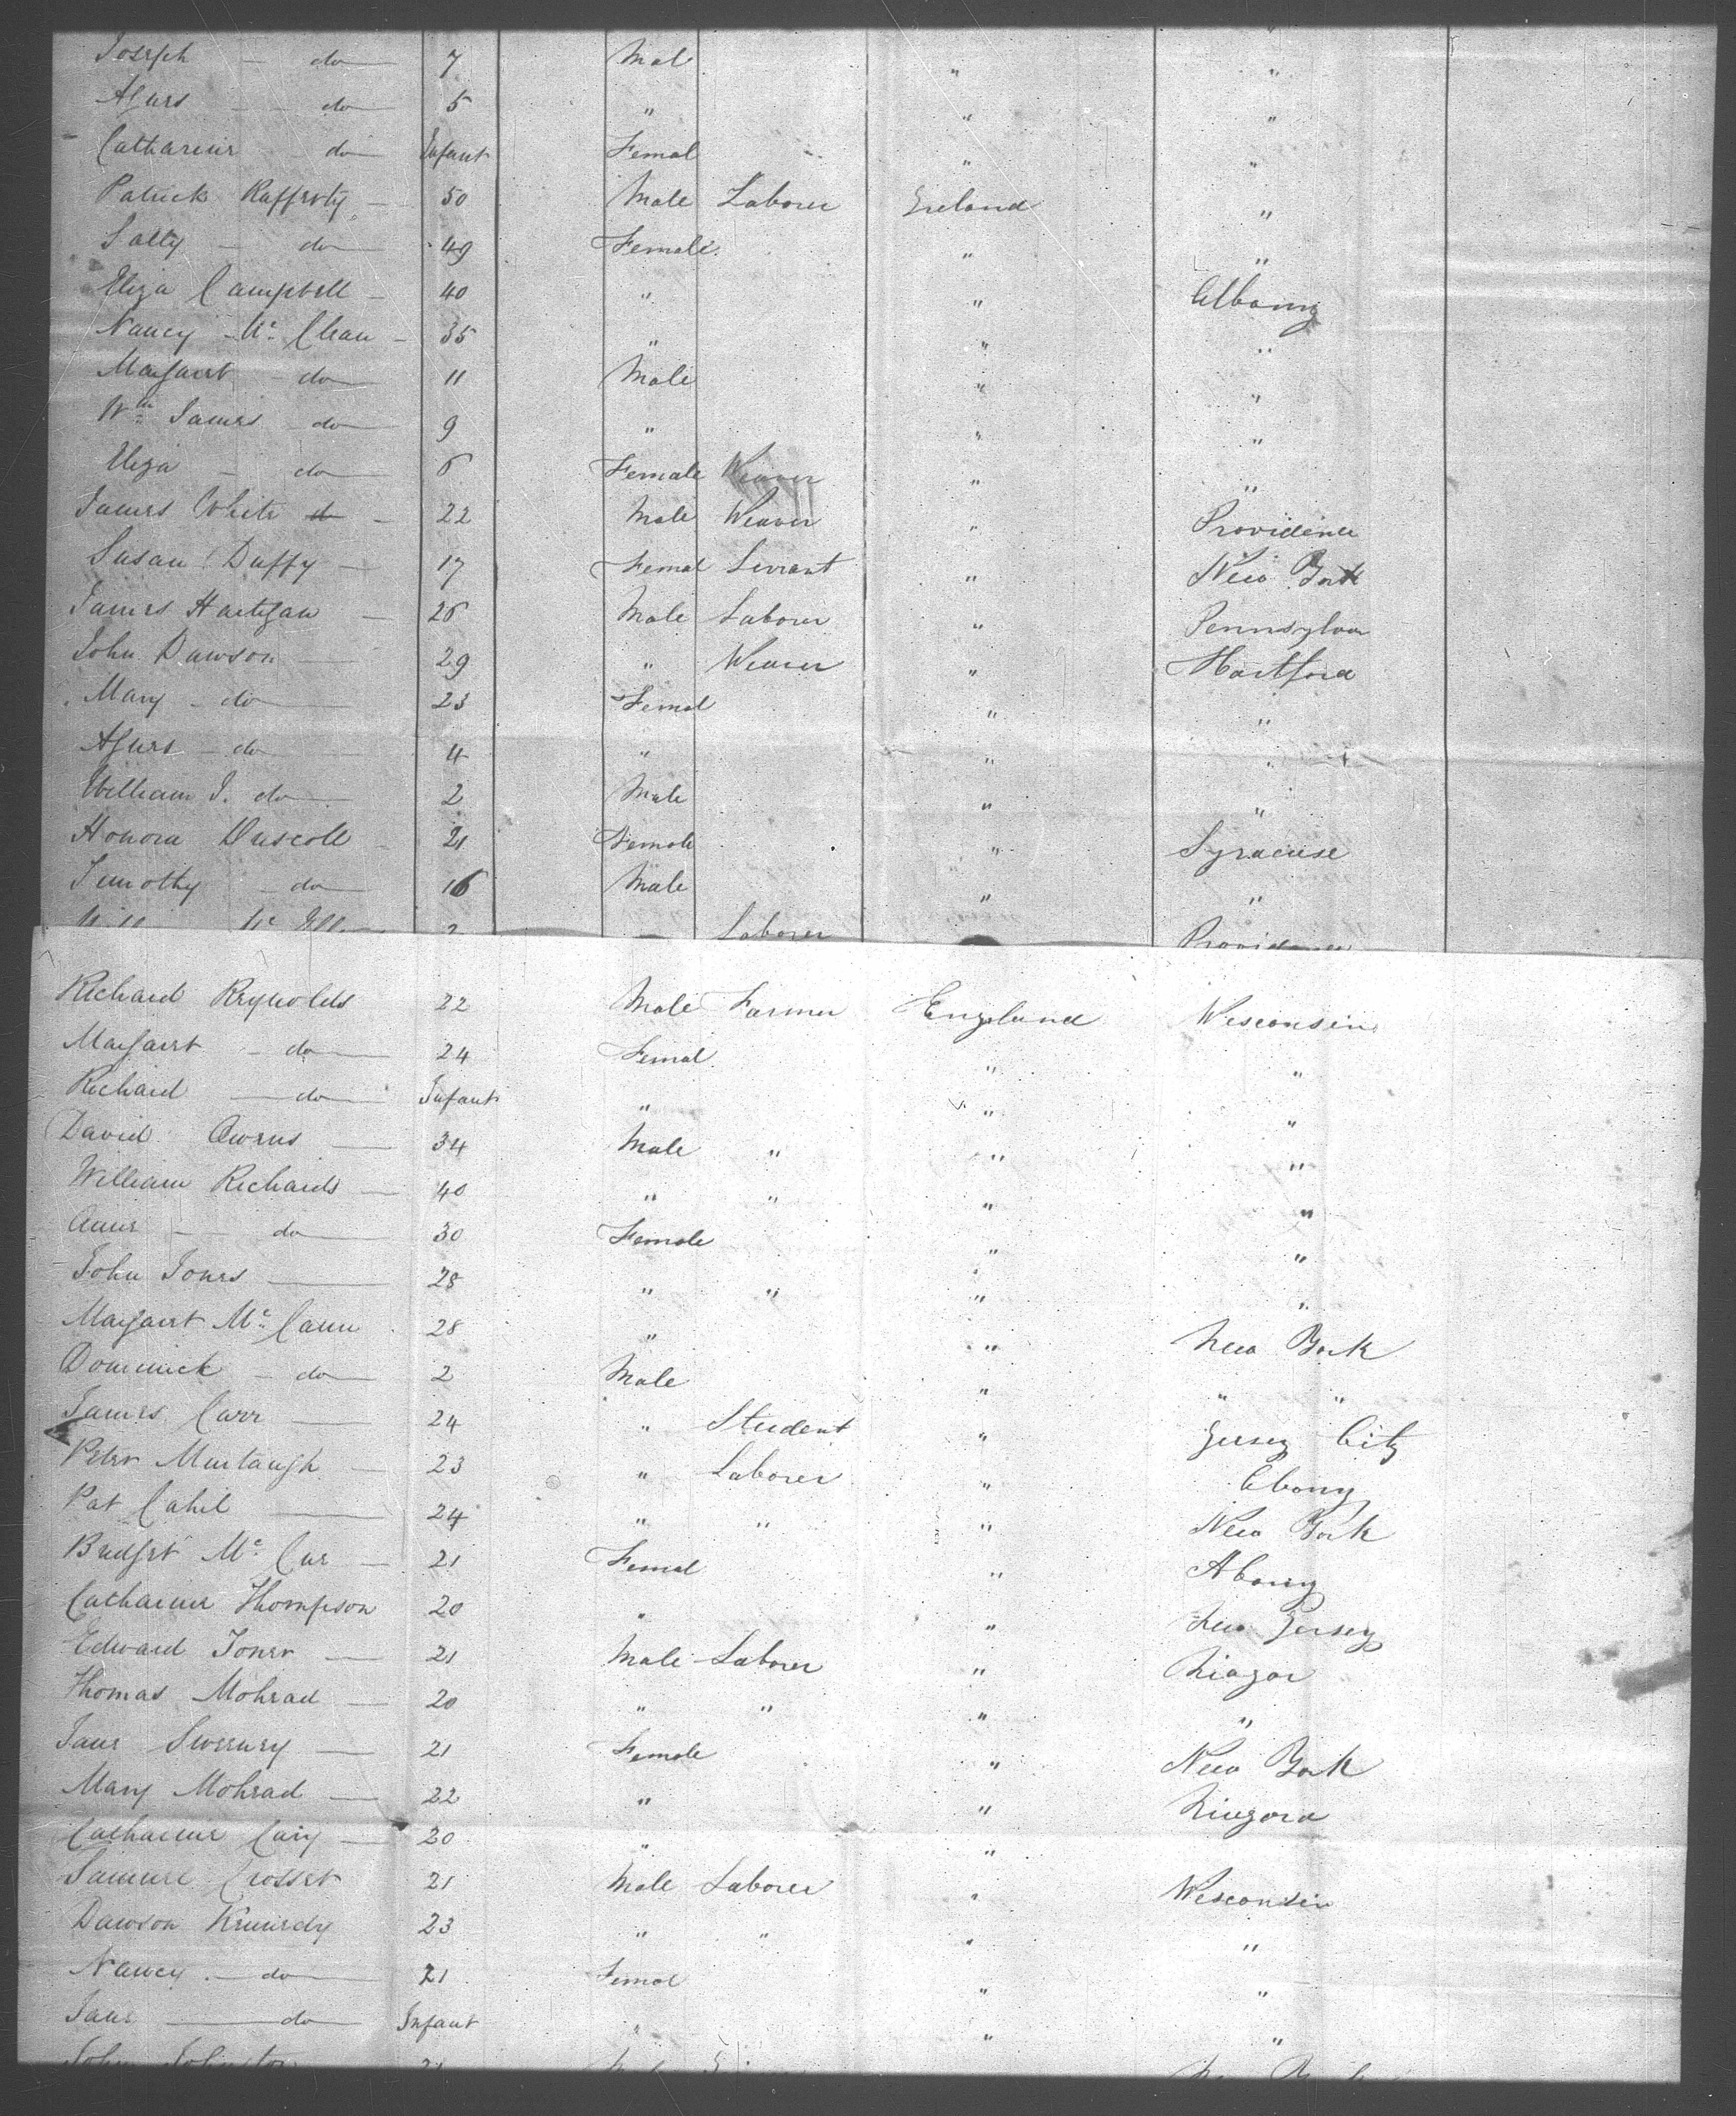 Joseph — do — 7 Mal " "
Agnes — do — 5 " " "
Catharine — do — Infant Femal " "
Patrick Rafferty — 50 Male Laborer Ireland "
Sally — do — 49 Female " "
Eliza Campbell — 40 " " Albany
Nancy Mc Clean — 35 " " "
Margaret — do — 11 Male " "
Wm James — do — 9 " " "
Eliza — do — 6 Female Weaver " "
James White do — 22 Male Weaver " Providence
Susan Duffy — 17 Femal Servant " New York
James Hartigan — 26 Male Laborer " Pennsylvan
John Dawson — 29 " Weaver " Hartford
Mary — do — 23 Femal " "
Agnes — do — 4 " " "
William J. do — 2 Male " "
Honora Driscoll — 21 Female " Syracuse
Timothy — do — 16 Male " "
Laborer Providence
Richard Reynolds 22 Male Farmer England Wesconsin
Margaret — do — 24 Femal " "
Richard — do — Infant " " "
David Owens — 34 Male " " "
William Richards — 40 " " " "
Anne — do — 30 Female " "
John Jones — 28 " " " "
Margaret Mc Cann 28 " " New York
Dominick — do — 2 Male " " "
James Carr — 24 " Student " Jersey City
Peter Murtaugh — 23 " Laborer " Albany
Pat Cahil — 24 " " " New York
Bridget Mc Cue — 21 Femal " Abany
Catharine Thompson 20 " " New Jersey
Edward Jones — 21 Male Laborer " Niagar
Thomas Mohead — 20 " " " "
Jane Sweeney — 21 Female " New York
Mary Mohead — 22 " " Niagara
Catharine Cary — 20 " "
Samuel Crosset 21 Male Laborer " Wesconsin
Dawson Kennedy 23 " " " "
Nancy — do — 21 Femal " "
Jane — do — Infant " " "
John Johnston 21